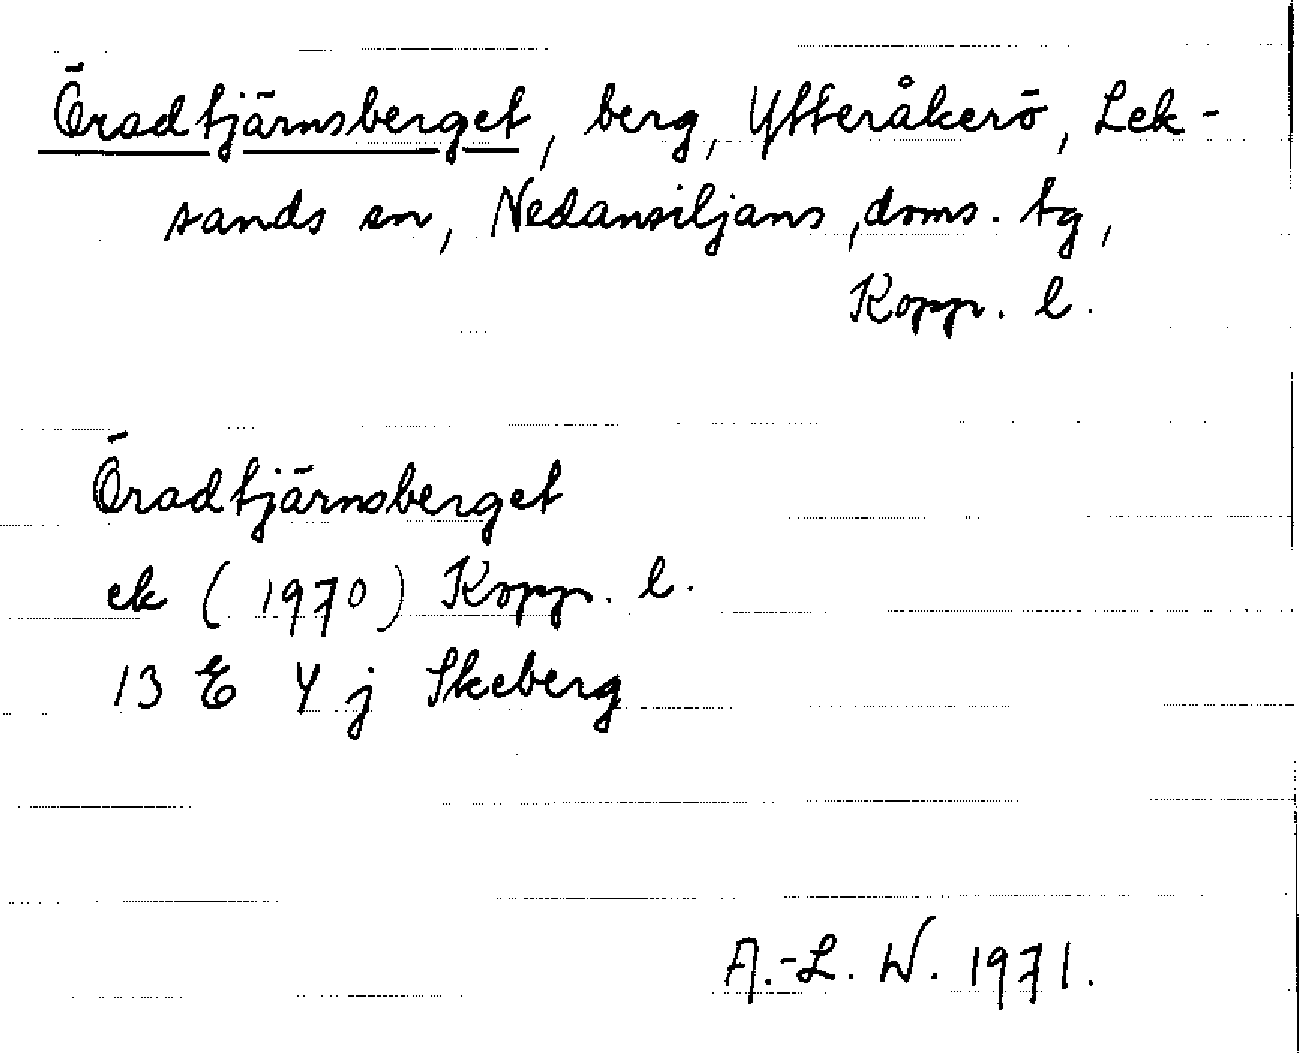 Öradtjärnsberget, berg, Ytteråkerö, Lek-
sands sn, Nedansiljans doms. tg,
Kopp. l.
Öradtjärnsberget
ek (1970) Kopp. l.
13 E 4 j Skeberg
A.-L. W. 1971.